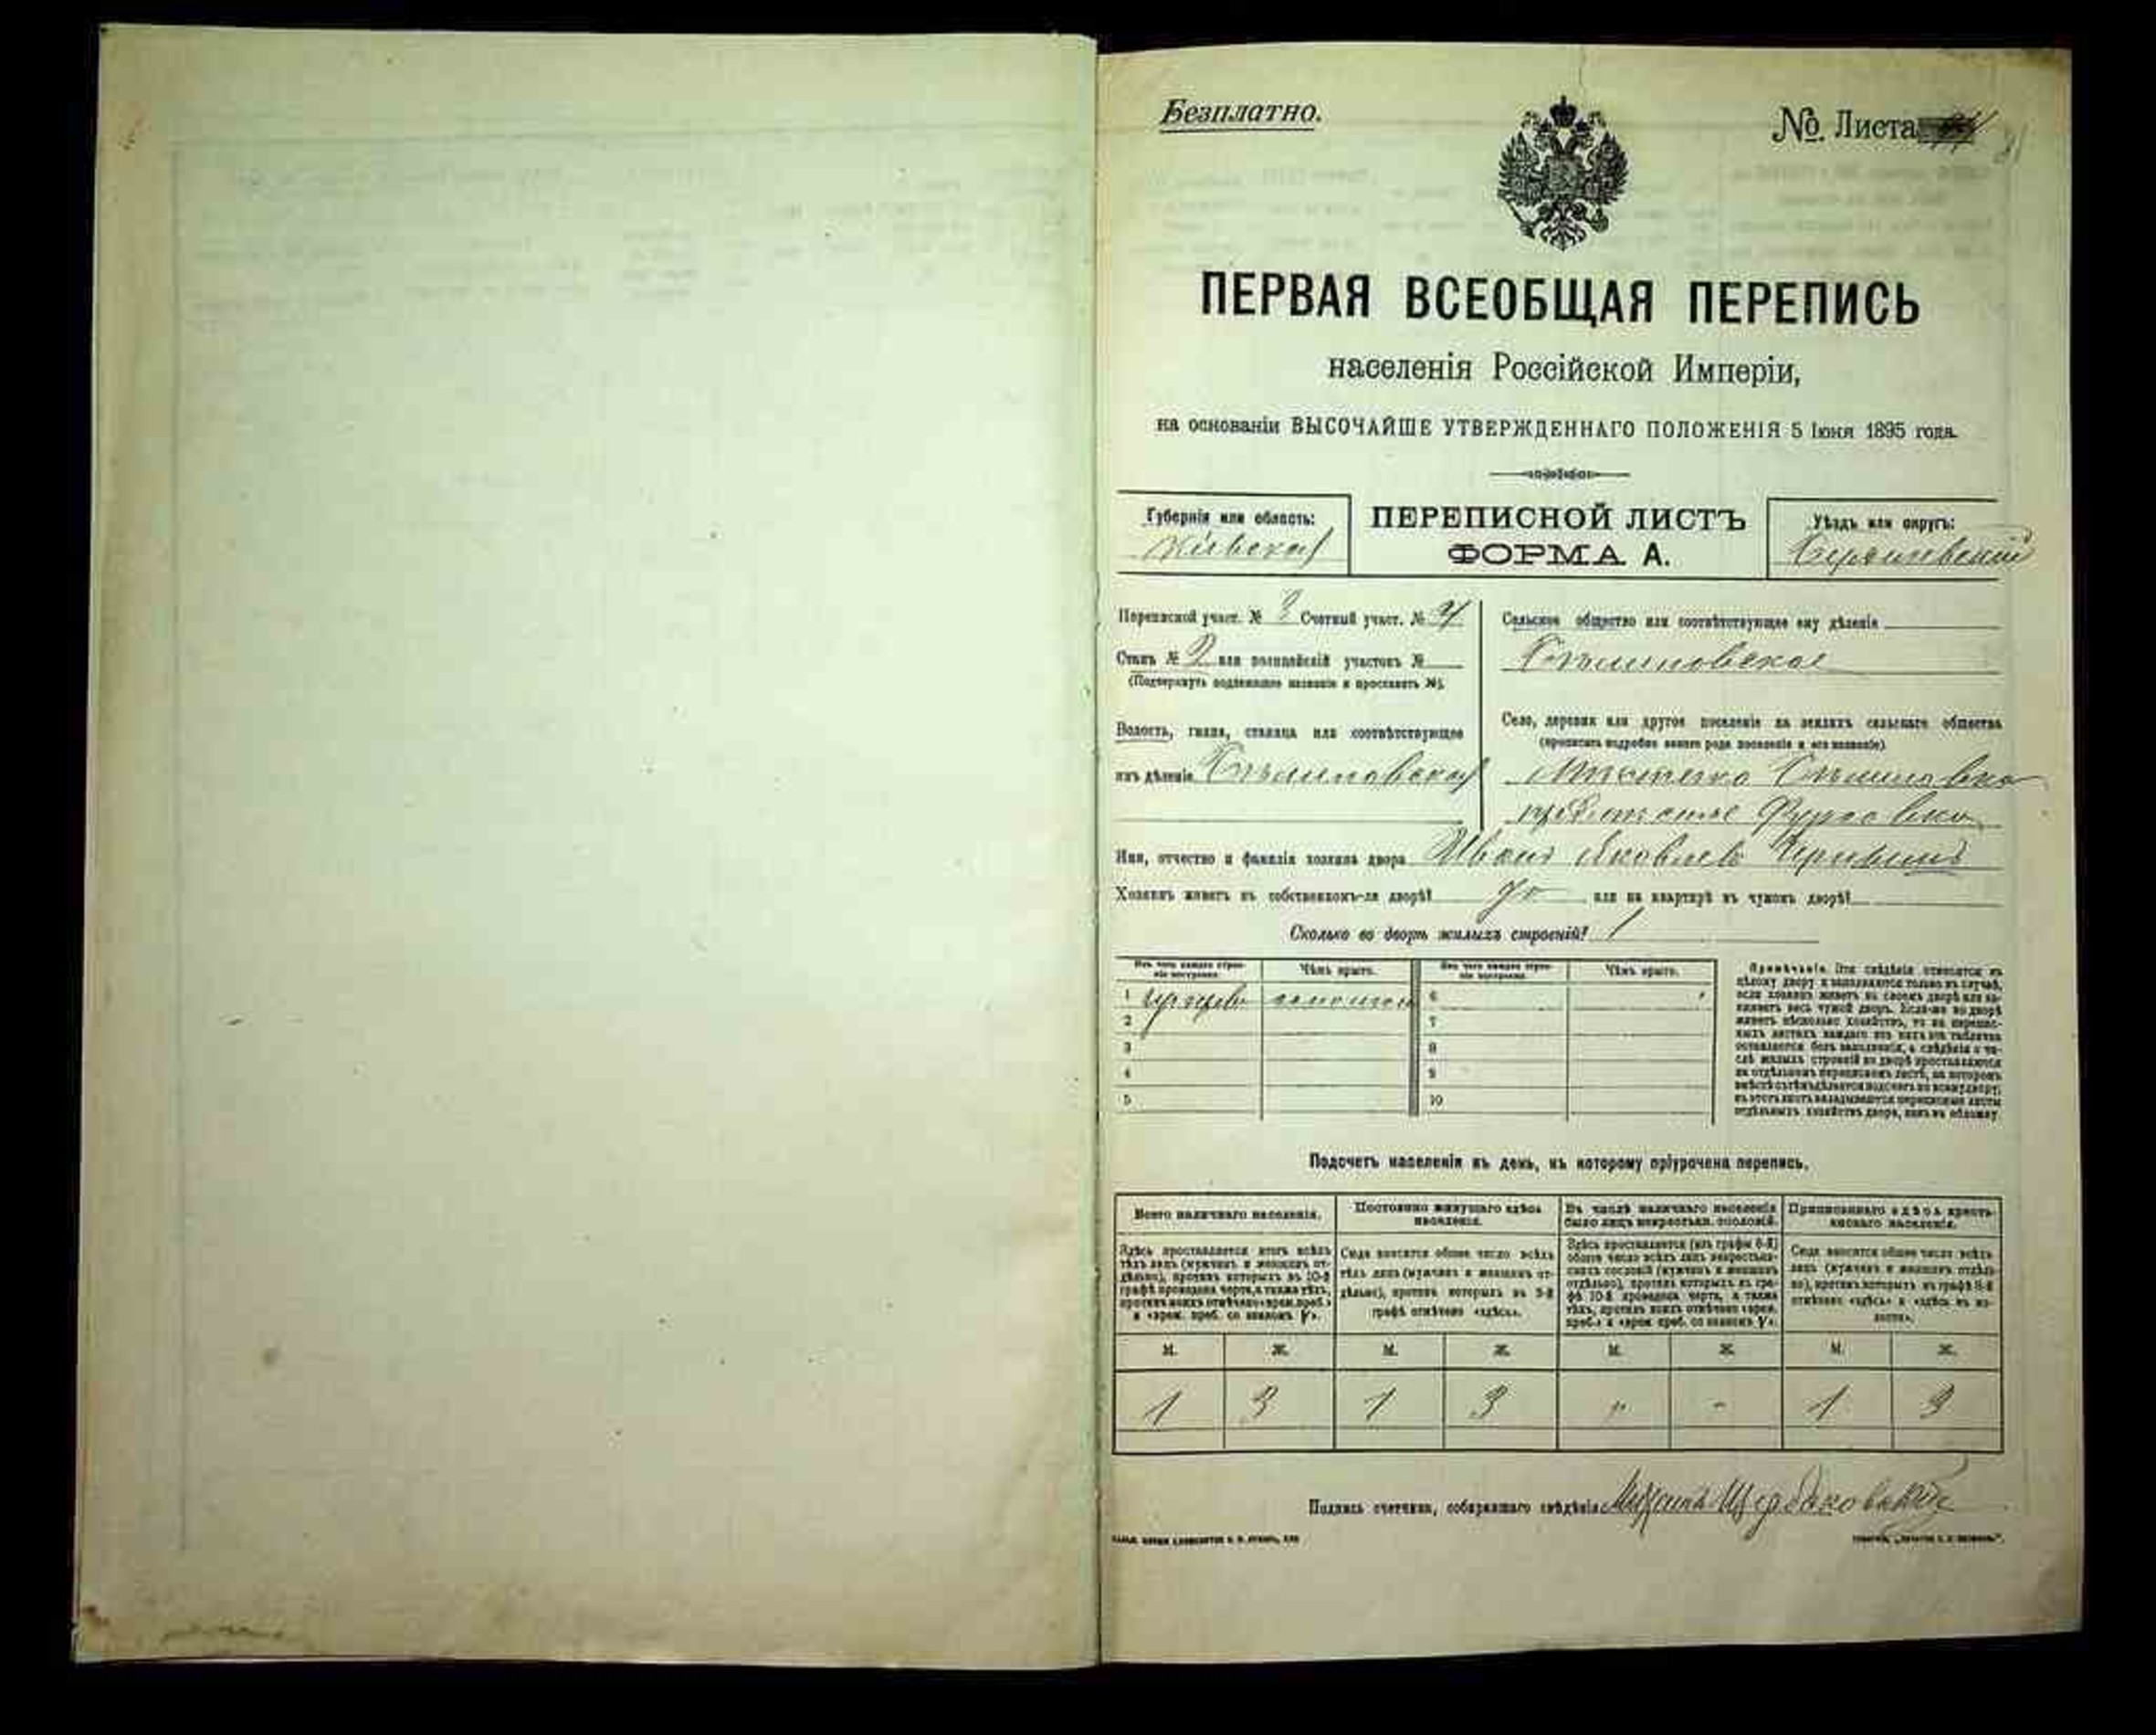 Безплатно.
№ Листа
ПЕРВАЯ ВСЕОБЩАЯ ПЕРЕПИСЬ
населенія Россійской Имперіи,
на основаніи ВЫСОЧАЙШЕ УТВЕРЖДЕННАГО ПОЛОЖЕНІЯ 5 Іюня 1895 года.
Губернія или область:
Кіевская
ПЕРЕПИСНОЙ ЛИСТЪ
ФОРМА А.
Уѣздъ или округъ:
Бердичевскій
Переписной участ. № 3 Счетный участ. № 4
Станъ № 2 или полицейскій участокъ №
(Подчеркнуть подлежащее названіе и проставить №).
Волость, гмина, станица или соотвѣтствующее
имъ дѣленіе Бѣлиловская
Сельское общество или соотвѣтствующее ему дѣленіе
Бѣлиловское
Село, деревня или другое поселеніе на земляхъ сельскаго общества
(прописать подробно какого рода поселеніе и его названіе)
Мѣстечко Бѣлиловка
Имя, отчество и фамилія хозяина двора Иванъ Яковлевъ
Хозяинъ живетъ въ собственномъ-ли дворѣ? или на квартирѣ въ чужомъ дворѣ?
Сколько во дворѣ жилыхъ строеній? 1
Изъ чего каждое строеніе построено. Чѣмъ крыто. Изъ чего каждое строеніе построено. Чѣмъ крыто.
1 6
2 7
3 8
4 9
5 10
Примѣчаніе. Эти свѣдѣнія относятся къ
цѣлому двору и заполняются только въ случаѣ,
если хозяинъ живетъ въ своемъ дворѣ или за-
нимаетъ весь чужой дворъ. Если-же во дворѣ
живетъ нѣсколько хозяйствъ, то на перепис-
ныхъ листахъ каждаго изъ нихъ эта табличка
оставляется безъ заполненія, а свѣдѣнія о чи-
слѣ жилыхъ строеній во дворѣ проставляются
на отдѣльномъ переписномъ листѣ, на которомъ
вмѣстѣ съ тѣмъ дѣлается подсчетъ по всему двору;
въ этотъ листъ вкладываются переписные листы
отдѣльныхъ хозяйствъ двора, какъ въ обложку.
Подсчетъ населенія въ день, къ которому пріурочена перепись.
Всего наличнаго населенія.
Здѣсь проставляется итогъ всѣхъ
тѣхъ лицъ (мужчинъ и женщинъ от-
дѣльно), противъ которыхъ въ 10-й
графѣ проведена черта, а также тѣхъ,
противъ коихъ отмѣчено «врем. преб.»
и «врем. преб. со знакомъ V».
Постоянно живущаго здѣсь
населенія.
Сюда вносится общее число всѣхъ
тѣхъ лицъ (мужчинъ и женщинъ от-
дѣльно), противъ которыхъ въ 9-й
графѣ отмѣчено «здѣсь».
Въ числѣ наличнаго населенія
было лицъ некрестьян. сословій.
Здѣсь проставляется (изъ графы 6-й)
общее число всѣхъ лицъ некрестьян-
скихъ сословій (мужчинъ и женщинъ
отдѣльно), противъ которыхъ въ гра-
фѣ 10-й проведена черта, а также
тѣхъ, противъ коихъ отмѣчено «врем.
преб.» и «врем. преб. со знакомъ V».
Приписаннаго здѣсь кресть-
янскаго населенія.
Сюда вносится общее число всѣхъ
лицъ (мужчинъ и женщинъ отдѣль-
но), противъ которыхъ въ графѣ 8-й
отмѣчено «здѣсь» и «здѣсь въ во-
лости».
М. Ж. М. Ж. М. Ж. М. Ж.
1 3 1 3 " - 1 3
Подпись счетчика, собиравшаго свѣдѣнія